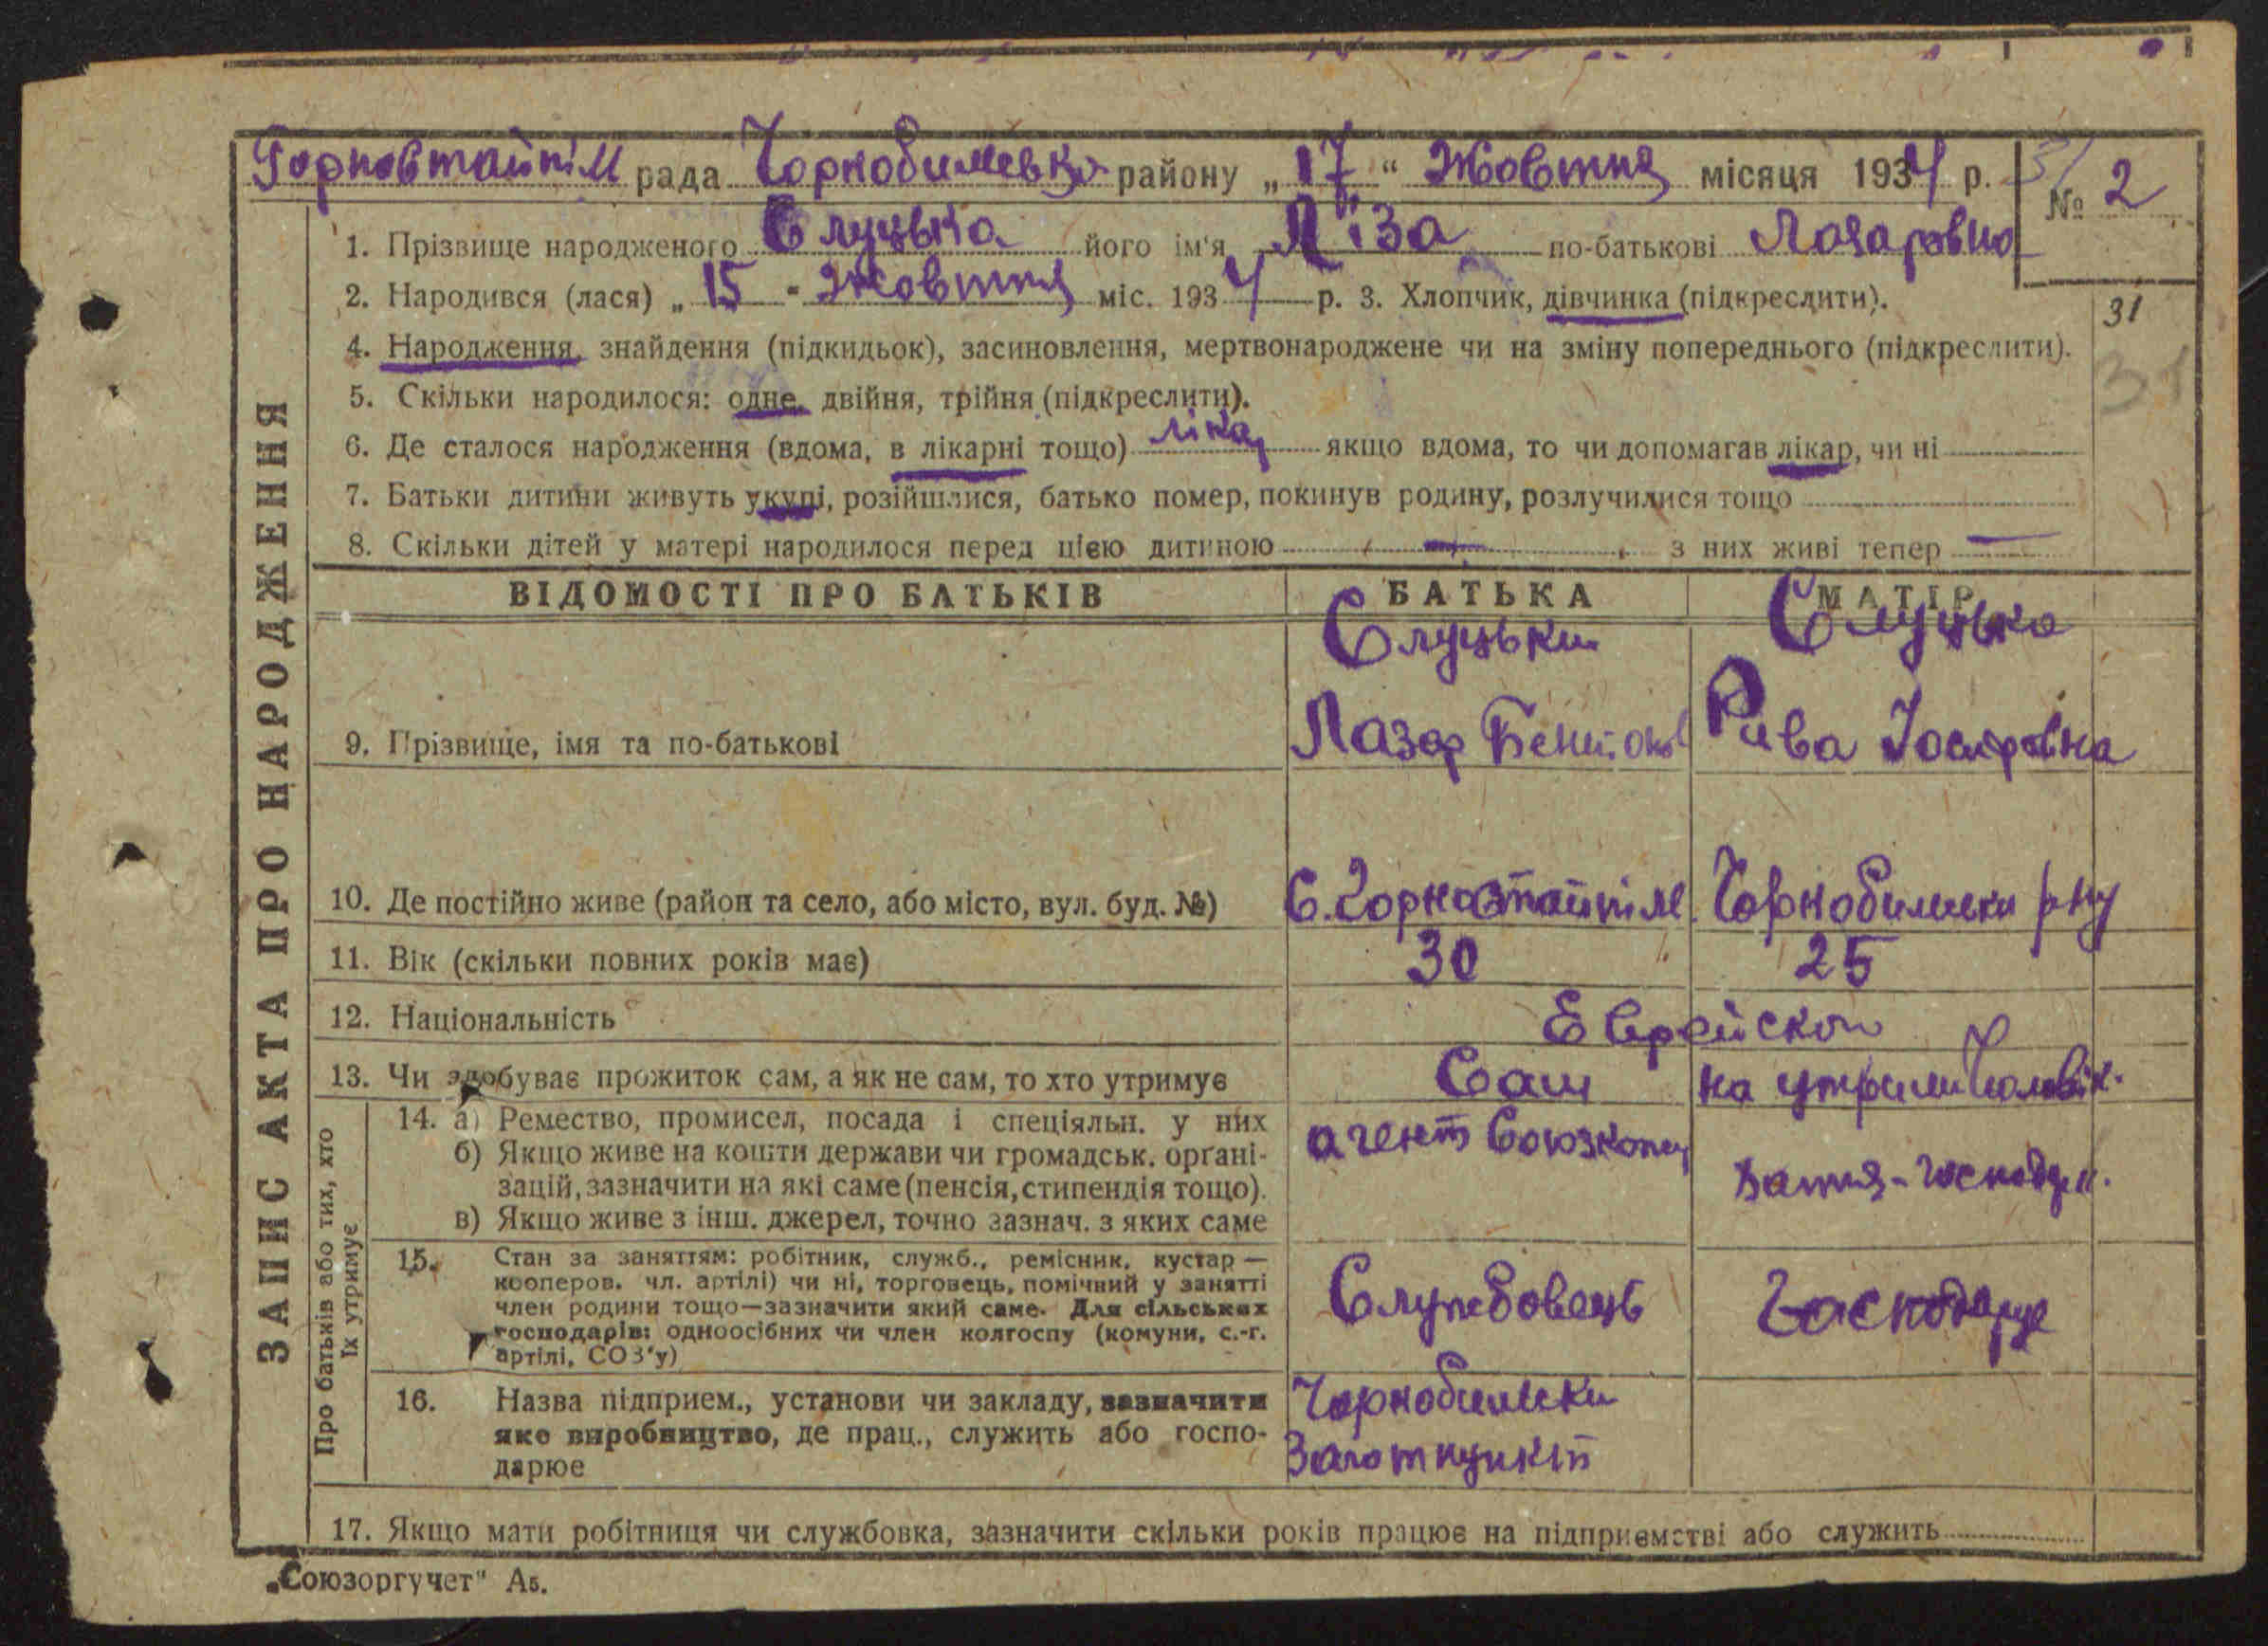 Горностайпіл рада Чорнобилевско району „17“ Жовтня місяця 1934 р. № 2
1. Прізвище народженого Слуцька його ім'я Ліза по-батькові Лазаровна
2. Народився (лася) „15" Жовтня міс. 1934 р. 3. Хлопчик, дівчинка (підкреслити).
31
4. Народження, знайдення (підкидьок), засиновлення, мертвонароджене чи на зміну попереднього (підкреслити).
31
5. Скільки народилося: одне, двійня, трійня (підкреслити).
6. Де сталося народження (вдома, в лікарні тощо) ліка якщо вдома, то чи допомагав лікар, чи ні
7. Батьки дитини живуть укупі, розійшлися, батько помер, покинув родину, розлучилися тощо
8. Скільки дітей у матері народилося перед цією дитиною — з них живі тепер —
ВІДОМОСТІ ПРО БАТЬКІВ БАТЬКА МАТІР
Слуцьки Слуцька
9. Прізвище, імя та по-батькові Лазар Рива Іосифовна
10. Де постійно живе (район та село, або місто, вул. буд. №) С. Горностайпіль Чорнобильски р-ну
11. Вік (скільки повних років має) 30 25
12. Національність Еврейской
13. Чи здобуває прожиток сам, а як не сам, то хто утримує Сам на утрим чоловік.
14. а) Ремество, промисел, посада і спеціяльн. у них агент
б) Якщо живе на кошти держави чи громадськ. орґані-
зацій, зазначити на які саме (пенсія, стипендія тощо).
в) Якщо живе з інш. джерел, точно зазнач. з яких саме
15. Стан за заняттям: робітник, служб., ремісник, кустар —
кооперов. чл. артілі) чи ні, торговець, помічний у занятті
член родини тощо—зазначити який саме. Для сільських
господарів: одноосібних чи член колгоспу (комуни, с.-г.
артілі, СОЗ'у)
Службовець Господарує
16. Назва підприєм., установи чи закладу, зазначити Чорнобильски
яке виробництво, де прац., служить або госпо- Заготпункт
дарює
17. Якщо мати робітниця чи службовка, зазначити скільки років працює на підприємстві або служить
ЗАПИС АКТА ПРО НАРОДЖЕННЯ
Про батьків або тих, хто
їх утримує
„Союзоргучет" А5.